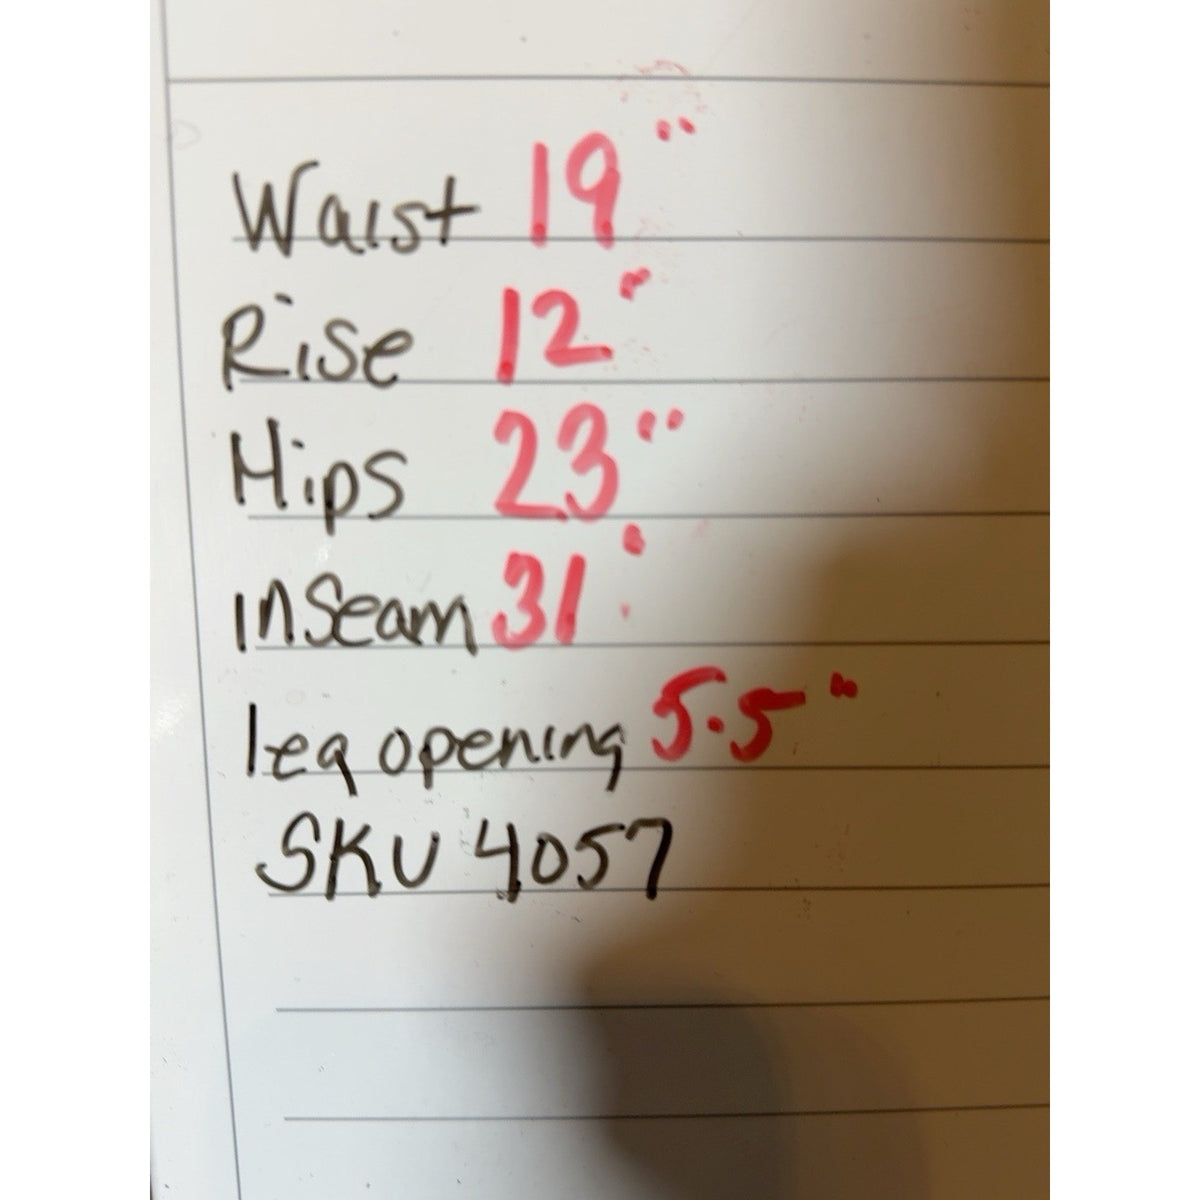 Waist 19"
Rise 12"
Hips 23"
inseam 31"
leg opening 5.5"
SKU 4057